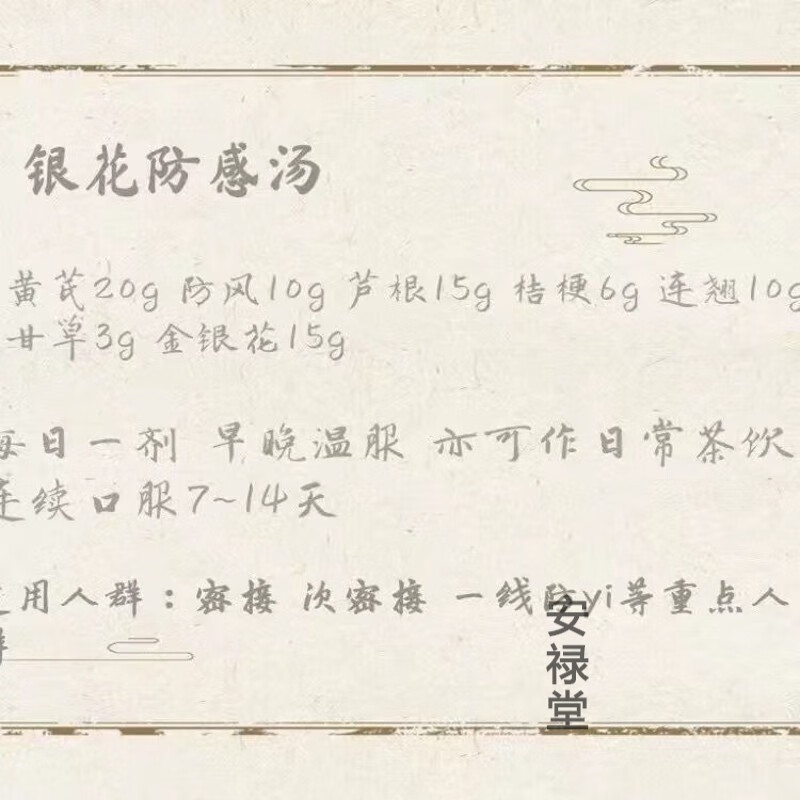 银花防感汤
黄芪20g 防风10g 芦根15g 桔梗6g 连翘10g
甘草3g 金银花15g
每日一剂 早晚温服 亦可作日常茶饮
连续口服7~14天
适用人群：密接 次密接 一线防yi等重点人
群
安禄堂